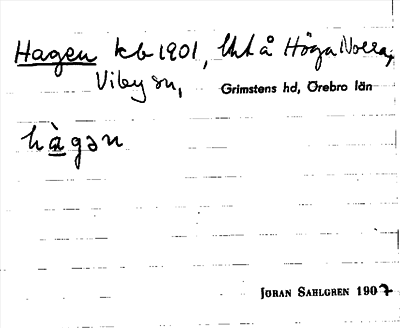 Hagen kb 1901, lht å Höga Nolla,
Viby sn, Grimstens hd, Örebro län
hàgən
JÖRAN SAHLGREN 1907